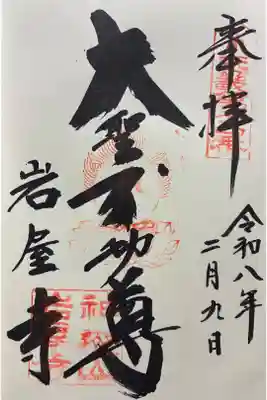 奉拝
令和八年
二月九日
大聖不動尊
岩屋寺